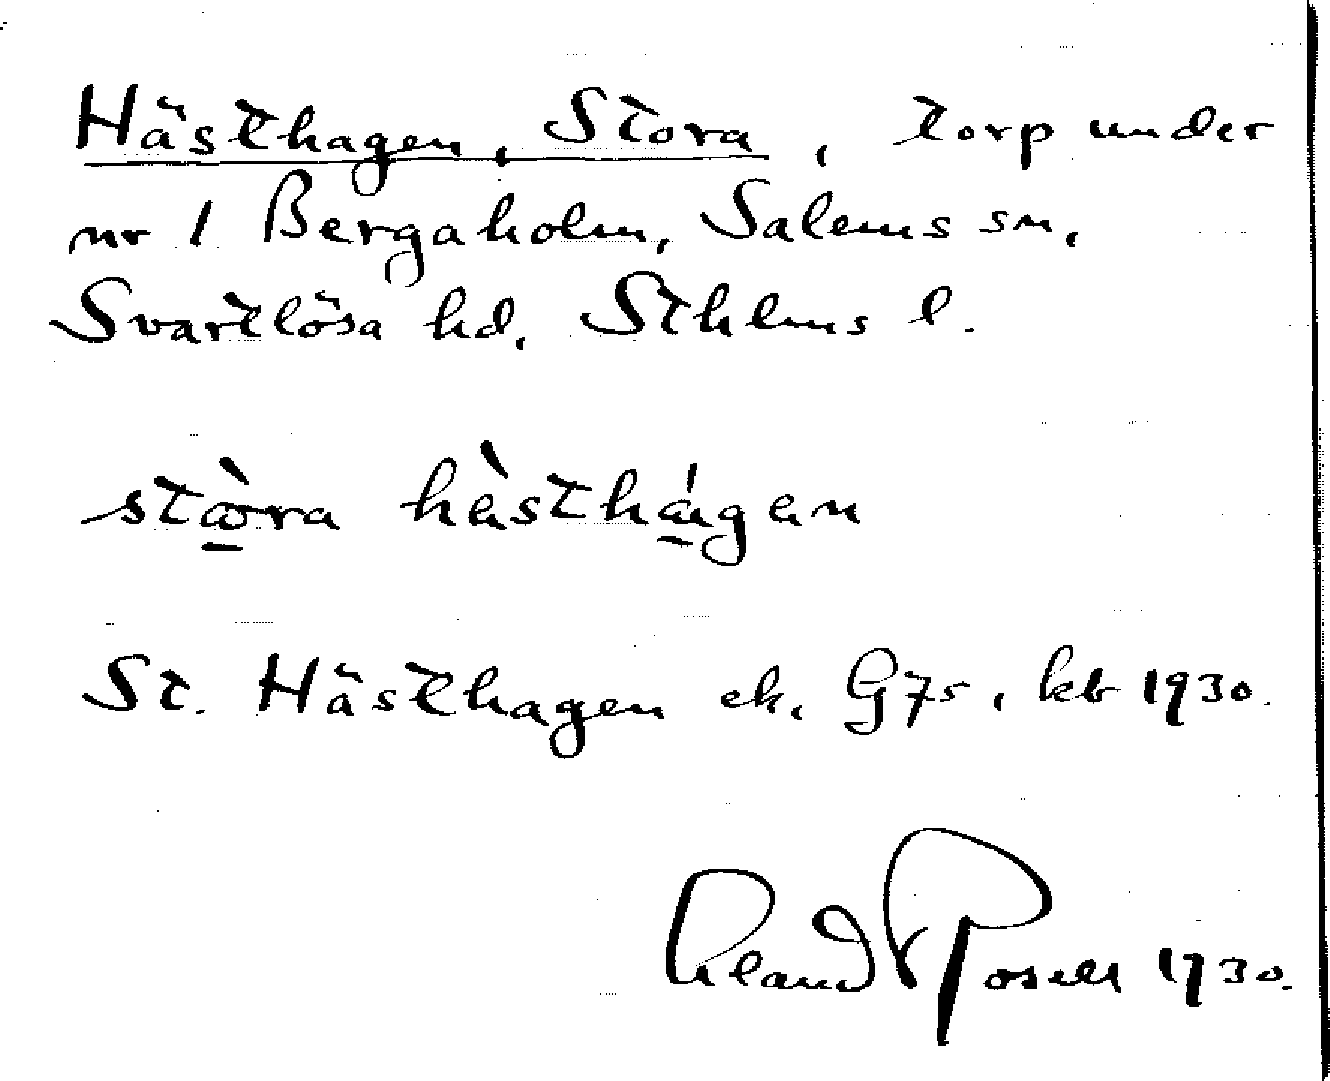 Hästhagen, Stora, torp under
nr 1 Bergaholm, Salems sn,
Svartlösa hd, Sthlms l.
stὼ̱ra hàsthá̱gen
St. Hästhagen ek. G7s, kb 1930.
1930.